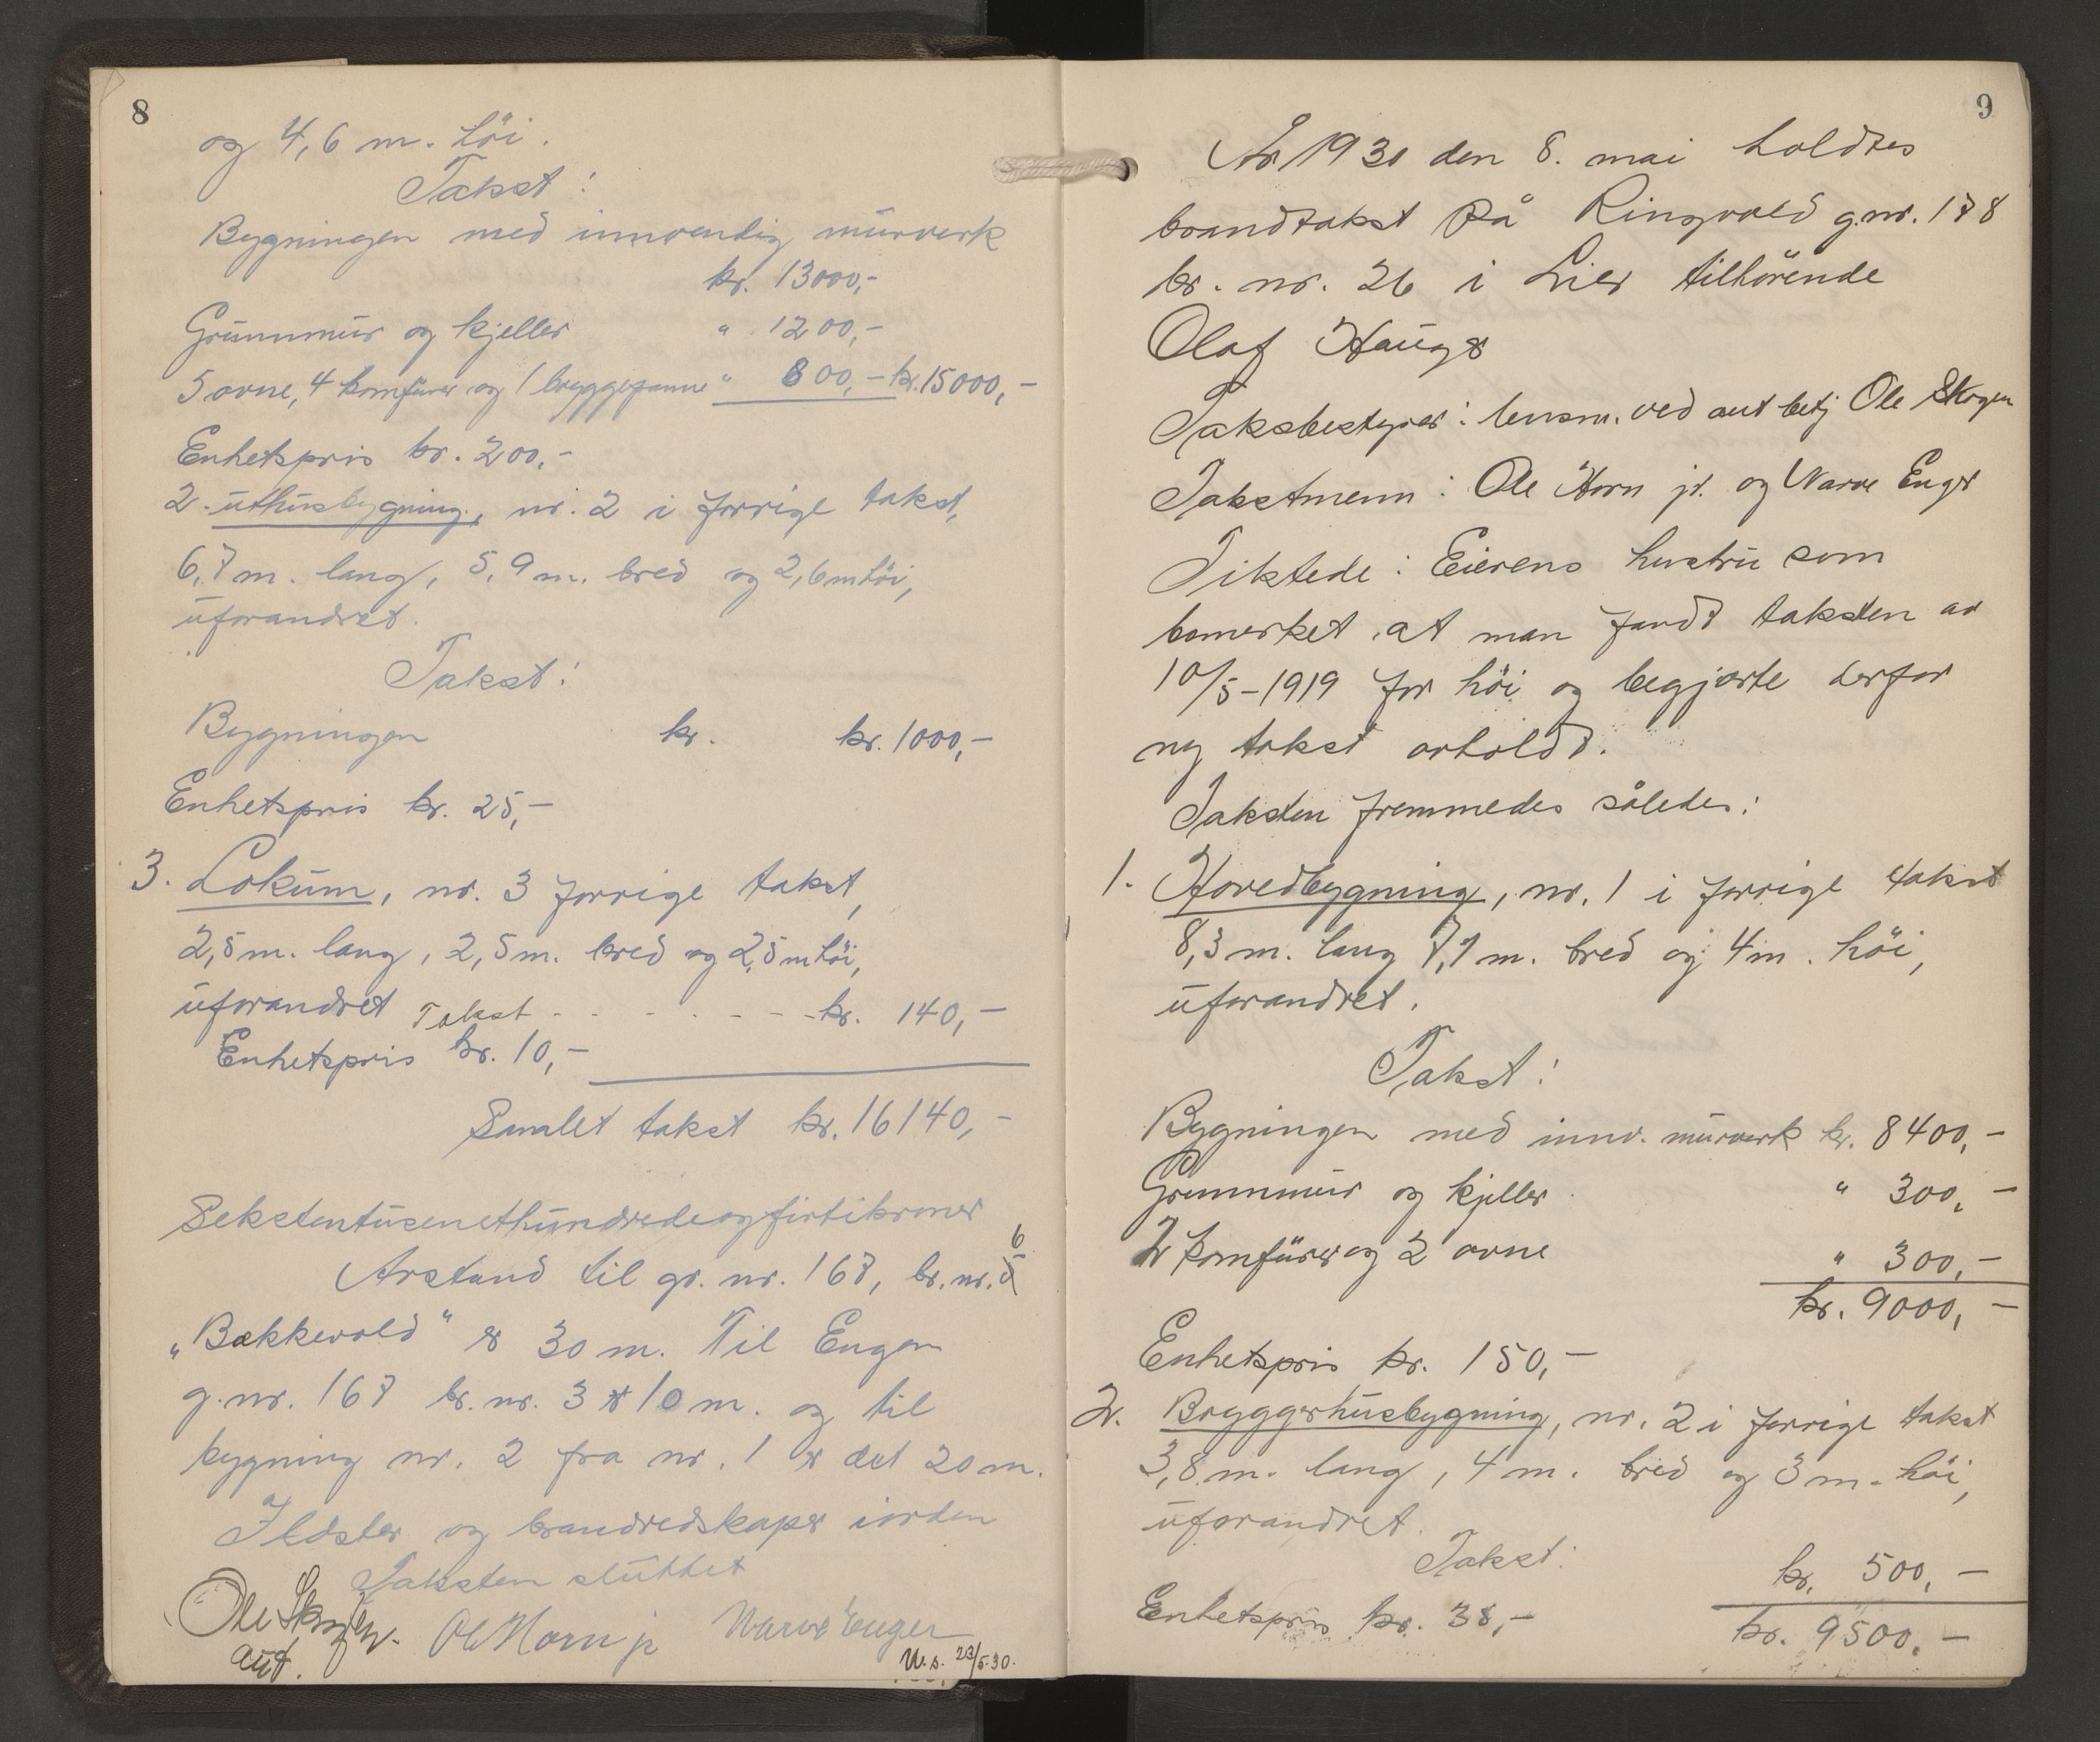 8
og 4,6 m. höi.
Takst:
Bygningen med innvendig murverk
kr. 13000,-
Grunnmur og kjeller " 1200,-
5 ovne, 4 komfurer og 1 bryggepanne " 800,- kr. 15000,-
Enhetspris kr. 200,-
2. uthusbygning, nr. 2 i forrige takst,
6,7 m. lang, 5,9 m. bred og 2,6 m höi,
uforandret.
Takst:
Bygningen kr. kr. 1000,-
Enhetspris kr. 25,-
3. Lokum, nr. 3 forrige takst,
2,5 m. lang, 2,5 m. bred og 2,5 m höi,
uforandret Takst - - - - - - - kr. 140,-
Enhetspris kr. 10,-
Samlet takst kr. 16140,-
Sekstentusenethundredeogførtikroner
6
Avstand til gr. nr. 167, br. nr.
"Bækkevold" er 30 m. Til Engen
g. nr. 167 br. nr. 3 er 10 m. og til
bygning nr. 2 fra nr. 1 er det 20 m.
Ildster og brandredskaper iorden
Taksten sluttet
Ole Skogen. Ole Horn jr Narve Enger
aut.
U.s. 23/5-30.
9
År 1930 den 8. mai holdtes
brandtakst på Ringvold g.nr. 178
br. nr. 26 i Lier tilhörende
Olaf Hauger
Taksbestyrer: lensm. ved aut betj Ole Skogen
Takstmenn: Ole Horn jr. og Narve Enger
Tilstede: Eierens hustru som
bemerket at man fandt taksten av
10/5-1919 for höi og begjærte derfor
ny takst avholdt.
Taksten fremmedes således:
1. Hovedbygning, nr. 1 i forrige takst
8,3 m. lang 7,7 m. bred og 4 m. höi,
uforandret.
Takst:
Bygningen med innv. murverk kr. 8400,-
Grunnmur og kjeller " 300,-
2 komfurer og 2 ovne " 300,-
kr. 9000,-
Enhetspris kr. 150,-
2. Bryggerhusbygning, nr. 2 i forrige takst
3,8 m. lang, 4 m. bred og 3 m. höi,
uforandret.
Takst: kr. 500,-
Enhetspris kr. 35,-
kr. 9500,-